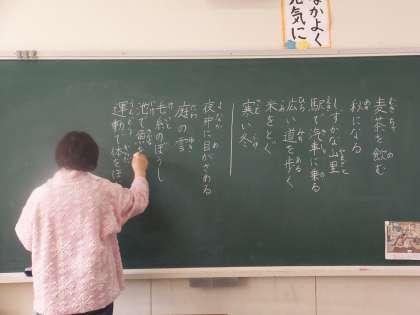 なかよく
元気に
麦茶を飲む
秋になる
しずかな山里
駅で汽車に乗る
広い道を歩く
米をとぐ
寒い冬
夜中に目がさめる
庭の雪
毛糸のぼうし
池で魚
運動で体をほ